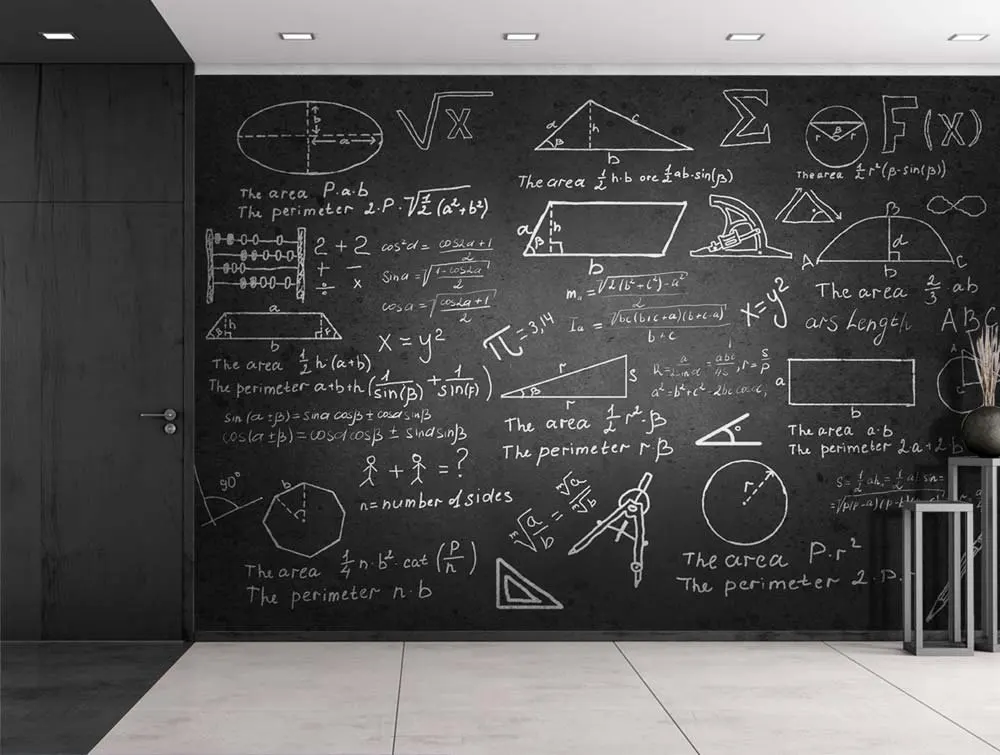 b
a
√x
α
β
h
c
b
Σ
r
β
r
F(x)
The area P.a.b
The perimeter 2.P.√½(a²+b²)
The area ½ h.b ore ½ab.sin(β)
The area ½ r²(β-sin(β))
2+2
+ −
÷ x
cos²α = cos2α+1/2
sinα = √1-cos2α/2
cosα = √cos2α+1/2
a
β
h
b
mₐ = √2(b²+c²)-a²/2
Iₐ = √bc(b+c+a)(b+c-a)/b+c
x=y²
A
B
C
d
b
The area 2/3 ab
ars Length ABC
a
h
b
x=y²
π=3,14
The area ½ h(a+b)
The perimeter a+b+h(1/sin(β)+1/sin(F))
sin(α±β)=sinα cosβ±cosα sinβ
cos(α±β)=cosα cosβ±sinα sinβ
r
β
r
S
The area ½ r².β
The perimeter rβ
a²=b²+c²-2bc cosα,
a
b
The area a.b
The perimeter 2a+2b
+ = ?
n=number of sides
90°
b
ⁿ√a/b = ⁿ√a/ⁿ√b
r
The area ¼ n.b².cat(P/n)
The perimeter n.b
The area P.r²
The perimeter 2.P.